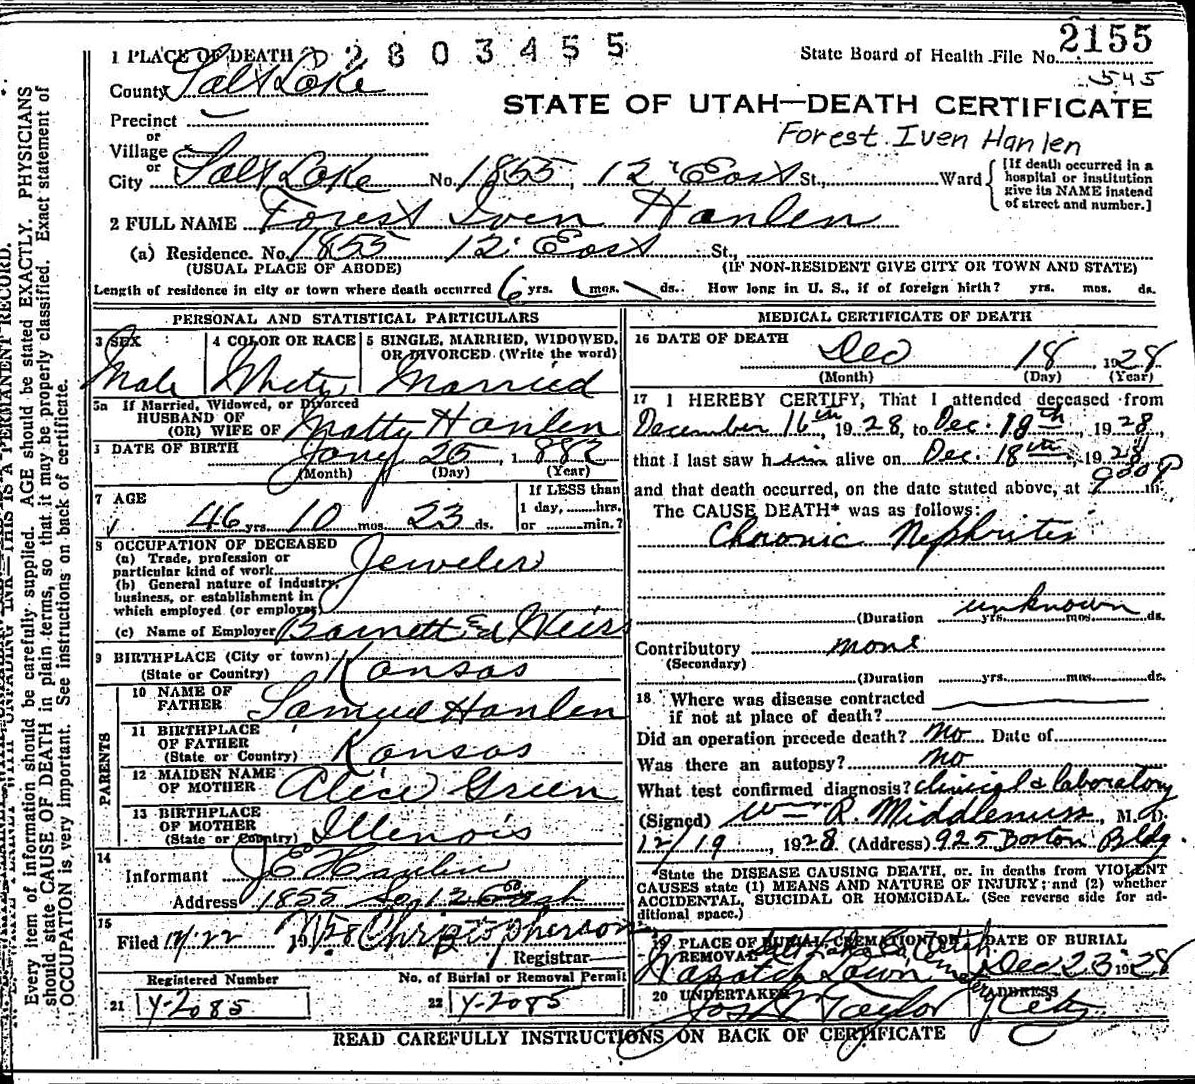 2803455
State Board of Health File No. 2155
545
1 PLACE OF DEATH
County Salt Lake
STATE OF UTAH—DEATH CERTIFICATE
Precinct
or
Village
Forest Iven Hanlen
or
City Salt Lake No. 1855, 12 East St., Ward
[If death occurred in a hospital or institution give its NAME instead of street and number.]
2 FULL NAME Forest Iven Hanlen
(a) Residence. No. 1855 12 East St.,
(USUAL PLACE OF ABODE) (IF NON-RESIDENT GIVE CITY OR TOWN AND STATE)
Length of residence in city or town where death occurred 6 yrs. mos. ds. How long in U. S., if of foreign birth? yrs. mos. ds.
PERSONAL AND STATISTICAL PARTICULARS
3 SEX 4 COLOR OR RACE 5 SINGLE, MARRIED, WIDOWED,
OR DIVORCED (Write the word)
Male White Married
5a If Married, Widowed, or Divorced
HUSBAND OF
(OR) WIFE OF Matty Hanlen
DATE OF BIRTH Jany 25, 1882
(Month) (Day) (Year)
7 AGE If LESS than
1 day, hrs.
46 yrs. 10 mos. 23 ds. or min.?
8 OCCUPATION OF DECEASED
(a) Trade, profession or
particular kind of work Jeweler
(b) General nature of industry,
business, or establishment in
which employed (or employer)
(c) Name of Employer Barnett & Weiss
9 BIRTHPLACE (City or town)
(State or Country) Kansas
PARENTS
10 NAME OF
FATHER Samuel Hanlen
11 BIRTHPLACE
OF FATHER
(State or Country) Kansas
12 MAIDEN NAME
OF MOTHER Alice Green
13 BIRTHPLACE
OF MOTHER
(State or Country) Illenois
14
Informant J E Hanlen
Address 1855 So 12 East
15
Filed 12/22 1928 Christopherson
Registrar
Registered Number No. of Burial or Removal Permit
21 Y-2085 22 Y-2085
MEDICAL CERTIFICATE OF DEATH
16 DATE OF DEATH
Dec 18 1928
(Month) (Day) (Year)
17 I HEREBY CERTIFY, That I attended deceased from
December 16th, 1928, to Dec. 18th, 1928,
that I last saw him alive on Dec. 18th, 1928
and that death occurred, on the date stated above, at 900 P m.
The CAUSE DEATH* was as follows:
Chronic Nephritis
unknown
(Duration yrs. mos. ds.
Contributory none
(Secondary)
(Duration yrs. mos. ds.
18 Where was disease contracted
if not at place of death?
Did an operation precede death? no Date of
Was there an autopsy? no
What test confirmed diagnosis? clinical & laboratory
(Signed) Wm R. Middlemiss, M. D.
12/19, 1928 (Address) 925 Boston Bldg.
*State the DISEASE CAUSING DEATH, or, in deaths from VIOLENT
CAUSES state (1) MEANS AND NATURE OF INJURY; and (2) whether
ACCIDENTAL, SUICIDAL OR HOMICIDAL. (See reverse side for additional space.)
19 PLACE OF BURIAL, CREMATION OR DATE OF BURIAL
REMOVAL
Wasatch Lawn Cemetery Dec 23 1928
20 UNDERTAKER ADDRESS
Jos Taylor City
READ CAREFULLY INSTRUCTIONS ON BACK OF CERTIFICATE
Every item of information should be carefully supplied. AGE should be stated EXACTLY. PHYSICIANS
should state CAUSE OF DEATH in plain terms, so that it may be properly classified. Exact statement of
OCCUPATION is very important. See instructions on back of certificate.